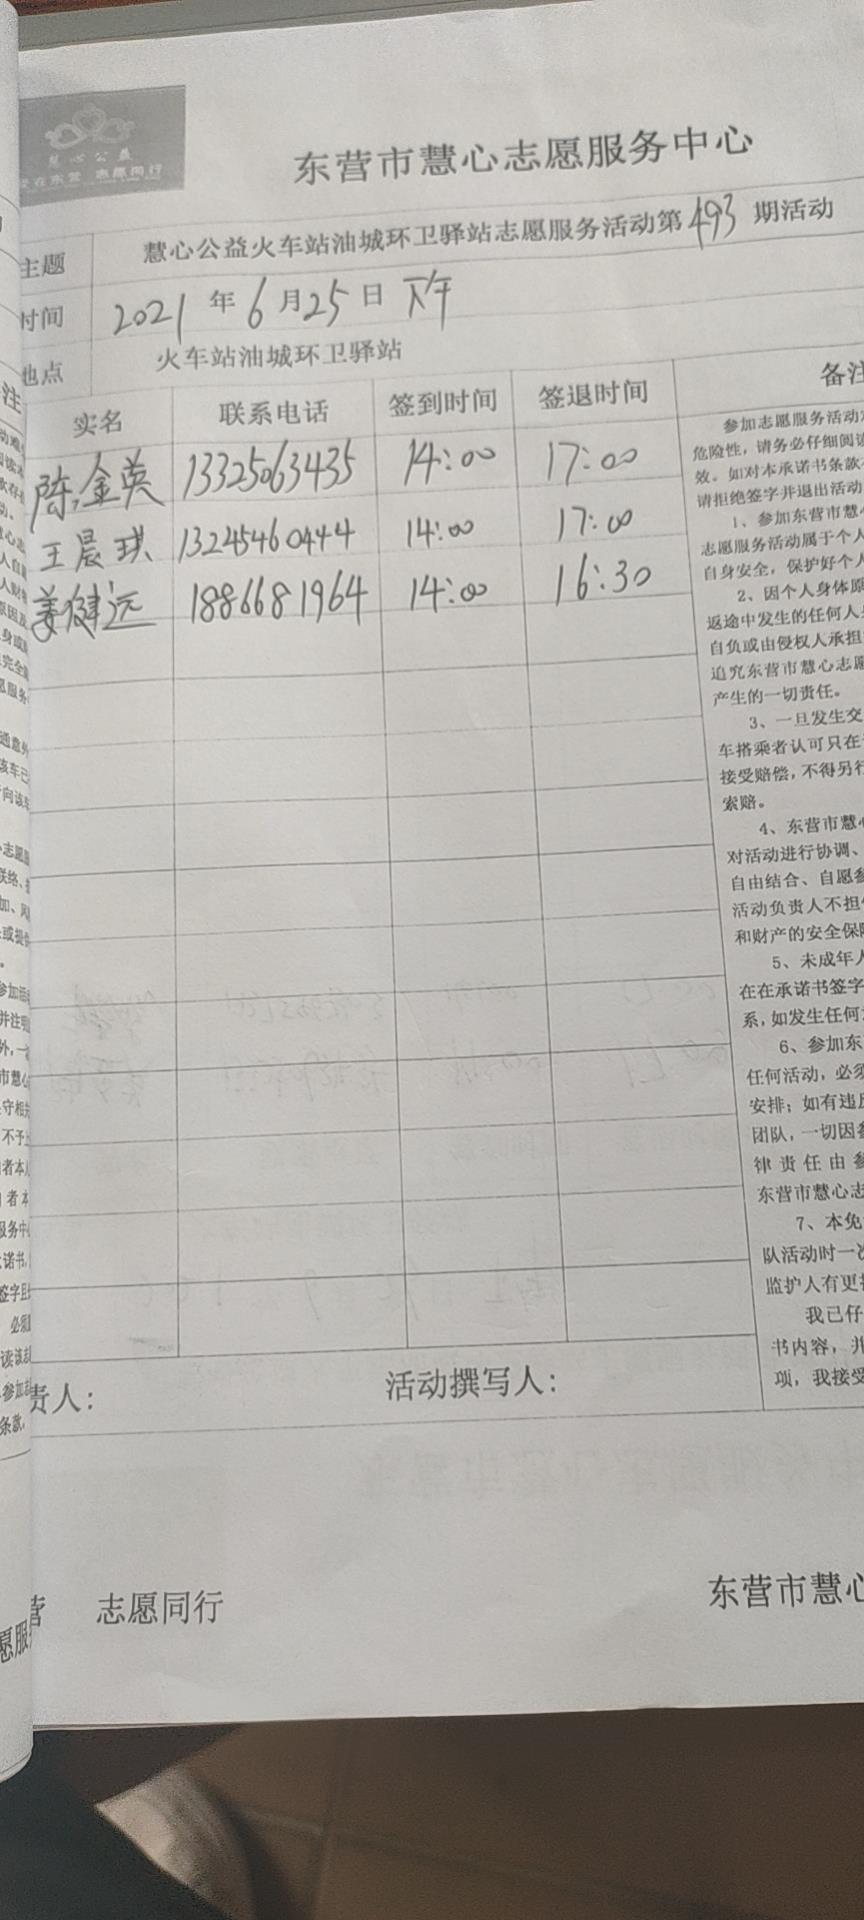 慧心公益
爱在东营 志愿同行
东营市慧心志愿服务中心
主题 慧心公益火车站油城环卫驿站志愿服务活动第493期活动
时间 2021年6月25日 下午
地点 火车站油城环卫驿站
实名 联系电话 签到时间 签退时间 备注
陈金英 13325063435 14:00 17:00
王晨琪 13245460444 14:00 17:00
姜健远 18866681964 14:00 16:30
参加志愿服务活动
危险性，请务必仔细阅读
效。如对本承诺书条款
请拒绝签字并退出活动
1、参加东营市慧心
志愿服务活动属于个人
自身安全，保护好个人
2、因个人身体原
返途中发生的任何人
自负或由侵权人承担
追究东营市慧心志愿
产生的一切责任。
3、一旦发生交
车搭乘者认可只在
接受赔偿，不得另行
索赔。
4、东营市慧心
对活动进行协调、
自由结合、自愿参
活动负责人不担
和财产的安全保障
5、未成年人
在在承诺书签字
系，如发生任何
6、参加东
任何活动，必须
安排；如有违反
团队，一切因参
律责任由参
东营市慧心志
7、本免
队活动时一次
监护人有更
我已仔
书内容，并
项，我接受
责人： 活动撰写人：
营 志愿同行 东营市慧心